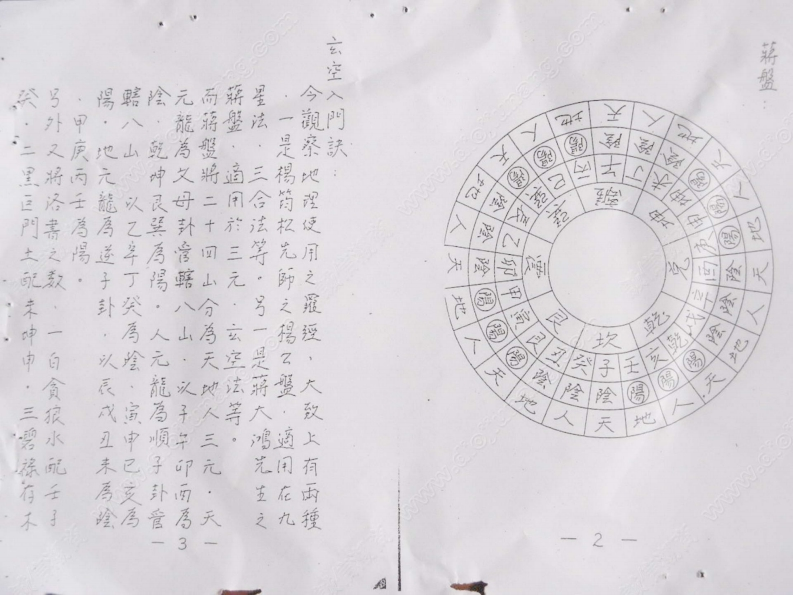 蔣盤：
天
地
人
天
地
人
天
地
人
天
地
人
天
地
人
天
地
人
天
地
人
天
地
人
陰
陰
陰
陽
陽
陽
陰
陰
陰
陽
陽
陽
陰
陰
陰
陽
陽
陽
陰
陰
陰
陽
陽
陽
午
丁
未
坤
申
庚
酉
辛
戌
乾
亥
壬
子
癸
丑
艮
寅
甲
卯
乙
辰
巽
巳
丙
離
坤
兌
乾
坎
艮
震
巽
－2－
玄空入門訣：
今觀察地理使用之羅經，大致上有兩種
．一是楊筠松先師之楊公盤．適用在九
星法．三合法等。另一是蔣大鴻先生之
蔣盤．適用於三元．玄空法等。
而蔣盤將二十四山分為天地人三元．天
元龍為父母卦管轄八山．以子午卯酉為
陰．乾坤艮巽為陽。人元龍為順子卦管
轄八山．以乙辛丁癸為陰．寅申巳亥為
陽．地元龍為逆子卦．以辰戌丑未為陰
．甲庚丙壬為陽。
另外又將洛書之數．一白貪狼水配壬子
癸．二黑巨門土配未坤申．三碧祿存木
－3－